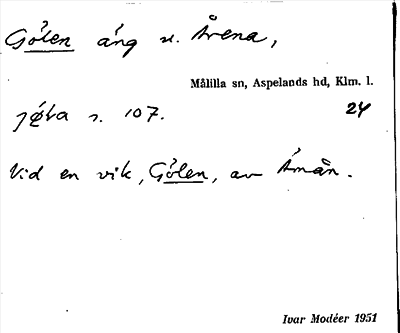 Gölen äng u. Årena,
Målilla sn, Aspelands hd, Klm. l.
s. 107. 24
Vid en vik, Gölen, av Åmån.
Ivar Modéer 1951